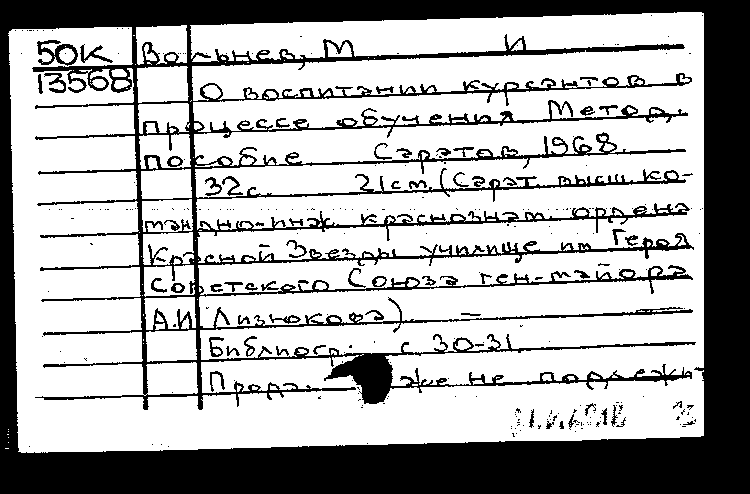 50К Вольнев, М И
13568
О воспитании курсантов в
процессе обучения Метод.
пособие Саратов, 1968.
32с. 21см. (Сарат. высш. ко-
мандно-инж. краснознам. ордена
Красной Звезды училище им Героя
Советского Союза ген-майора
А.И. Лизюкова) =
Библиогр: с 30-31.
Прода. же не подлежит